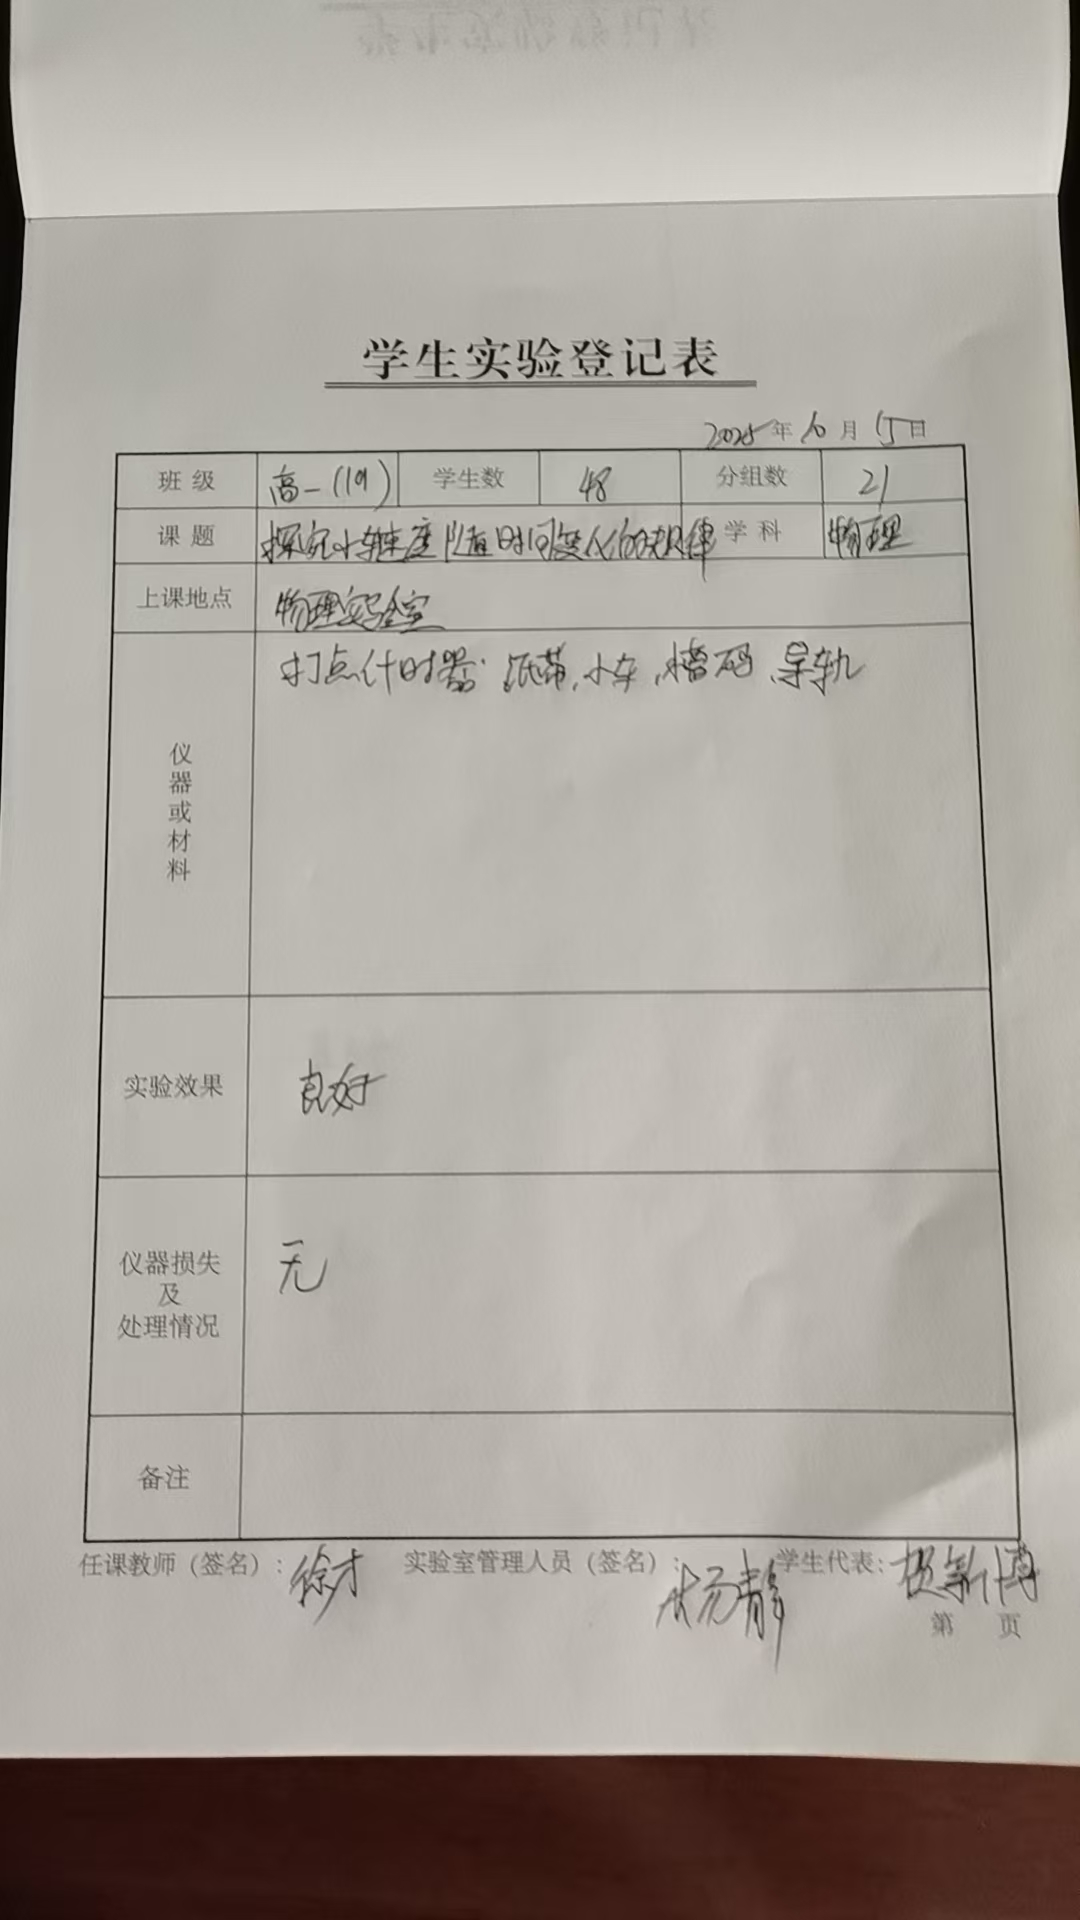 学生实验登记表
2025年10月15日
班级 高一(19) 学生数 48 分组数 21
课题 探究小车速度随时间变化的规律 学科 物理
上课地点 物理实验室
仪器或材料 打点计时器、纸带、小车、槽码、导轨
实验效果 良好
仪器损失及处理情况 无
备注
任课教师（签名）：徐才 实验室管理人员（签名）：杨静 学生代表：
第 页